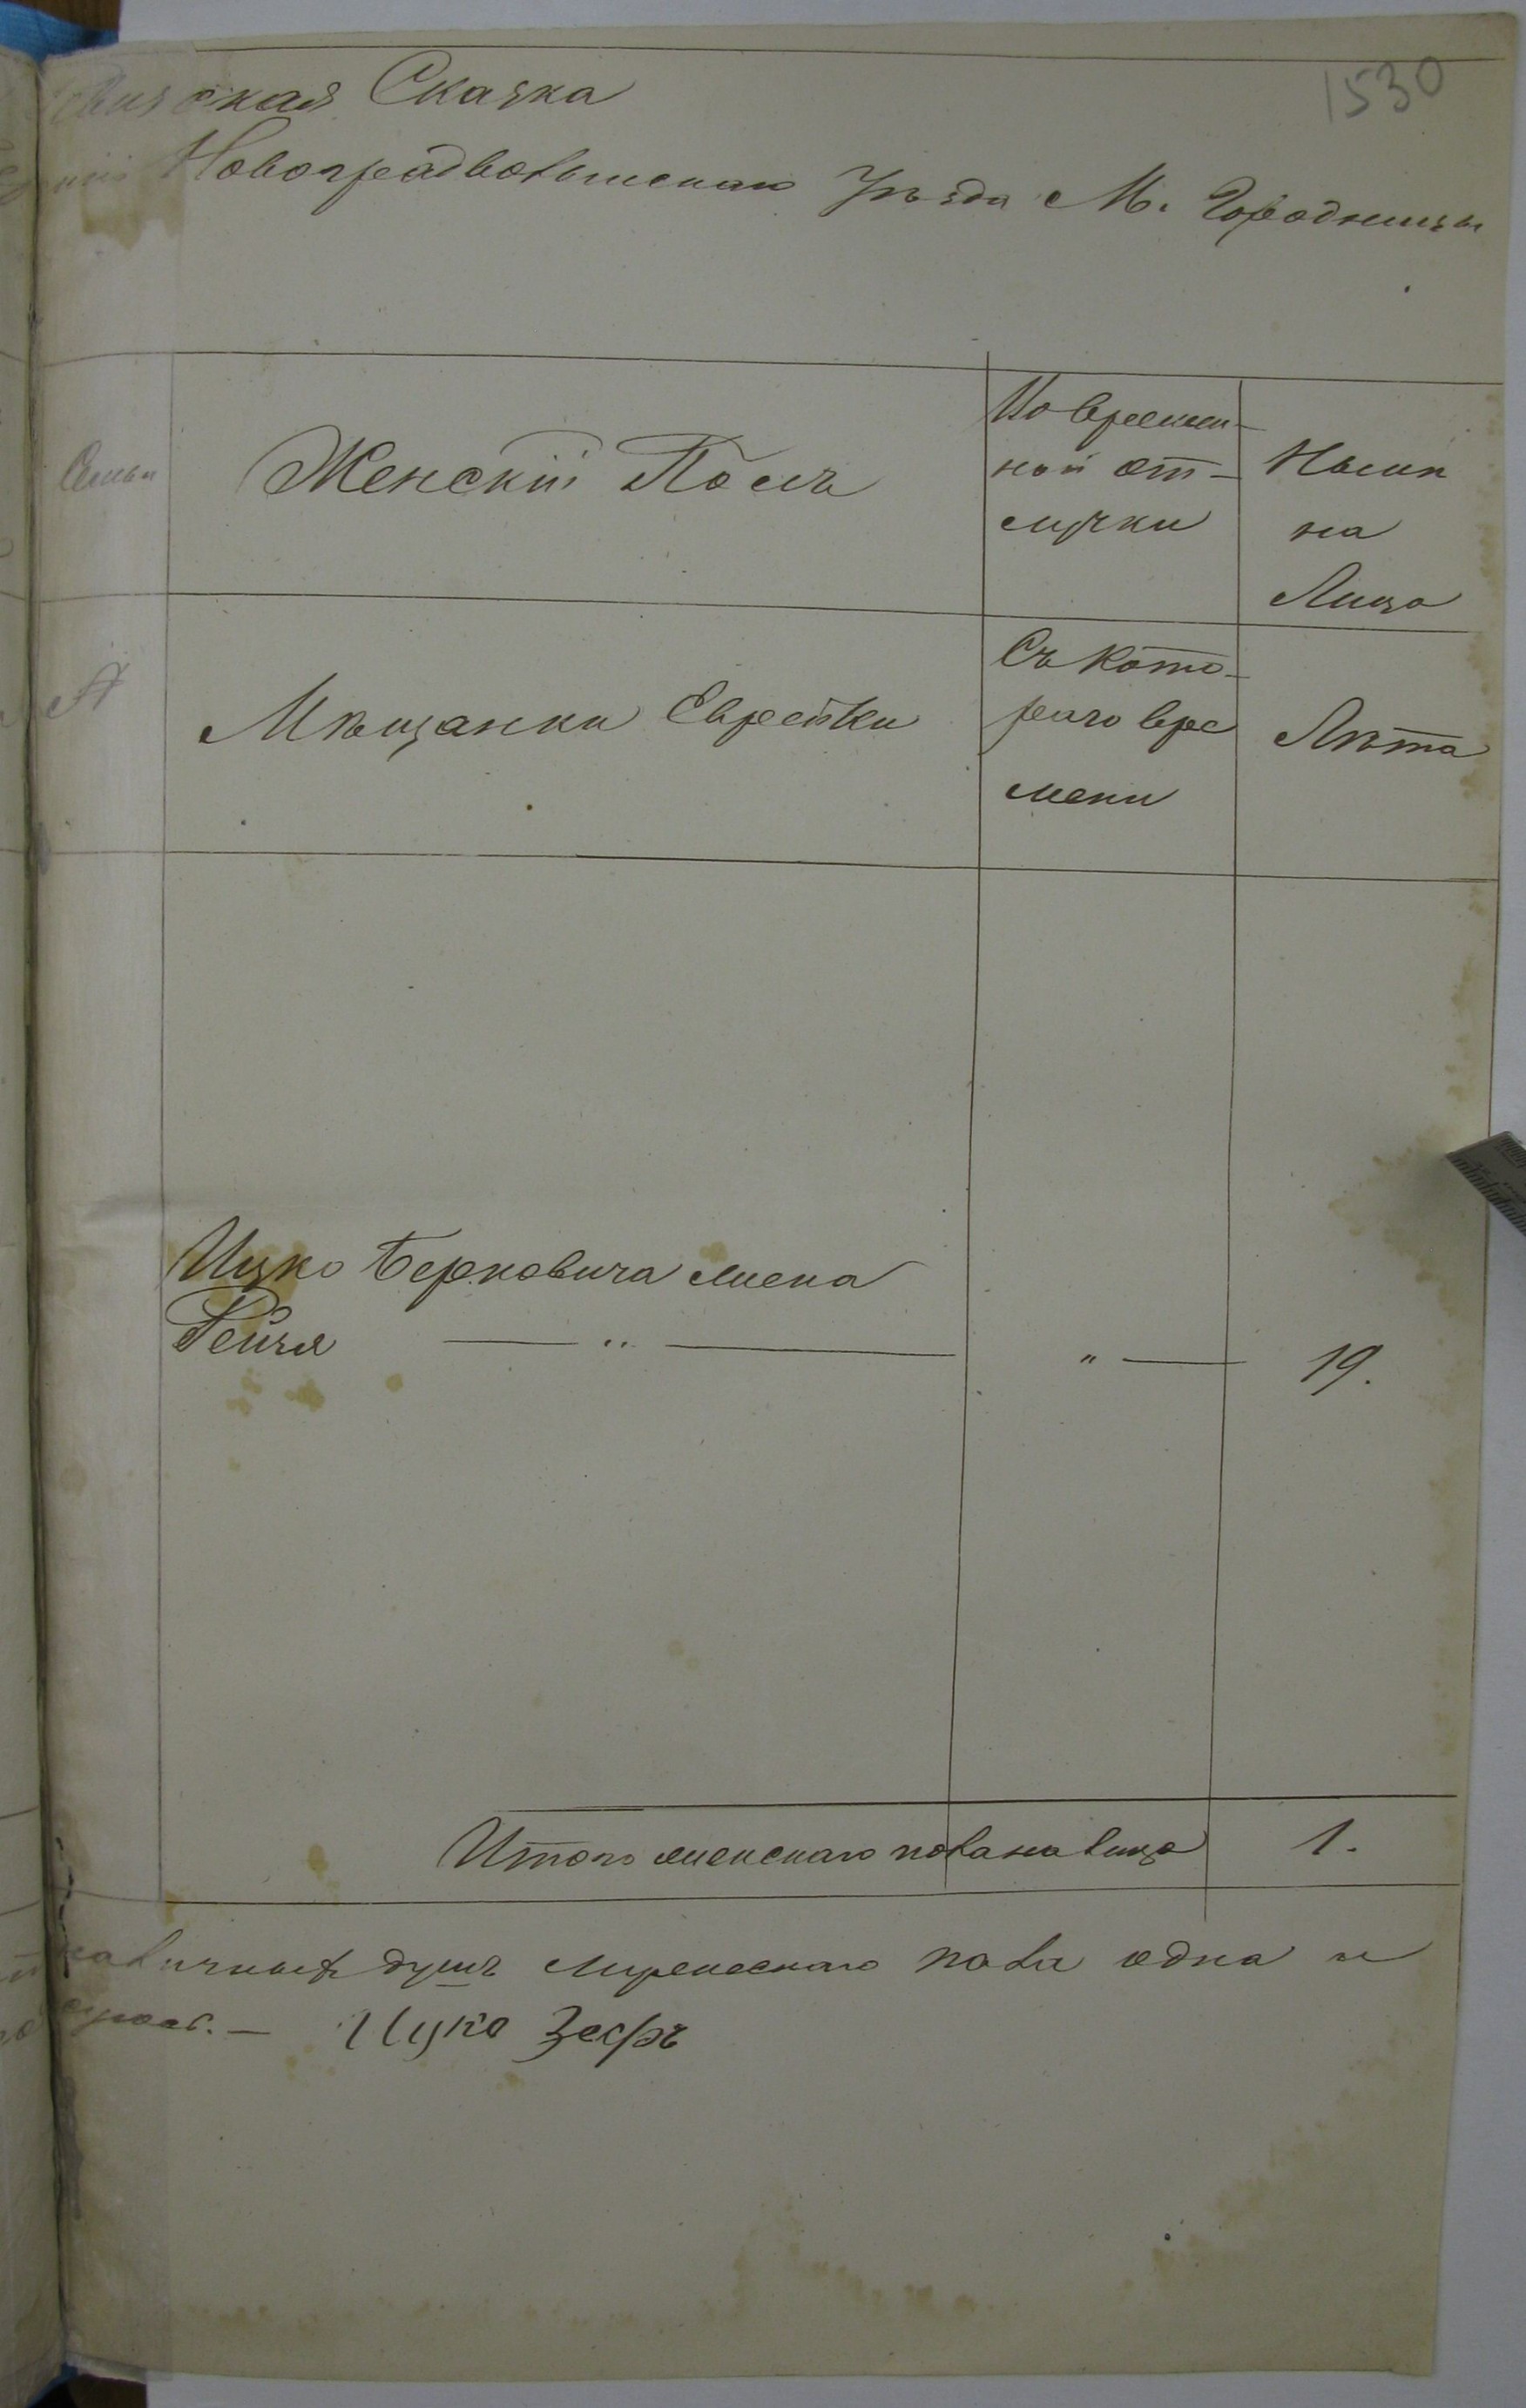 1530
Ревизская Сказка
Новоградволынскаго Уѣзда М. Городницы
Семьи
Женскій Полъ
Во времен-
ной от-
лучки
Нынѣ
на
Лицо
Мѣщанки Еврейки
Съ Кото-
раго вре
мени
Лѣта
Ицко Берковича жена
Рейзя — " —
" —
19.
Итого женскаго пола на лицо
1.
наличныхъ душъ мужескаго пола одна и
Ицко Зесръ